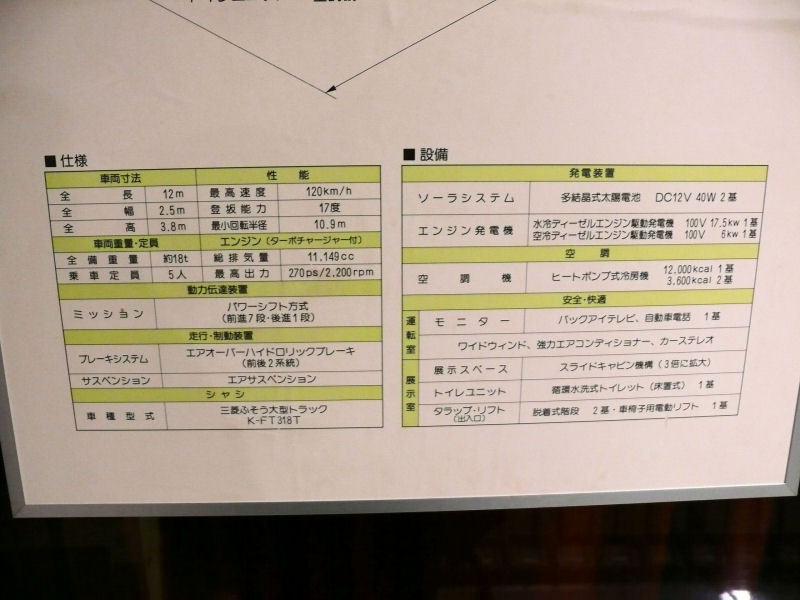 ■仕様
車両寸法 性能
全長 12m 最高速度 120km/h
全幅 2.5m 登坂能力 17度
全高 3.8m 最小回転半径 10.9m
車両重量・定員 エンジン(ターボチャージャー付)
全備重量 約18t 総排気量 11,149cc
乗車定員 5人 最高出力 270ps/2,200rpm
動力伝達装置
ミッション パワーシフト方式
(前進7段・後進1段)
走行・制動装置
ブレーキシステム エアオーバーハイドロリックブレーキ
(前後2系統)
サスペンション エアサスペンション
シャシ
車種型式 三菱ふそう大型トラック
K-FT318T
■設備
発電装置
ソーラシステム 多結晶式太陽電池 DC12V 40W 2基
エンジン発電機 水冷ディーゼルエンジン駆動発電機 100V 17.5kw 1基
空冷ディーゼルエンジン駆動発電機 100V 6kw 1基
空調
空調機 ヒートポンプ式冷房機 12,000kcal 1基
3,600kcal 2基
安全・快適
運転室 モニター バックアイテレビ、自動車電話 1基
ワイドウィンド、強力エアコンディショナー、カーステレオ
展示室 展示スペース スライドキャビン機構(3倍に拡大)
トイレユニット 循環水洗式トイレット(床置式) 1基
タラップ・リフト 脱着式階段 2基・車椅子用電動リフト 1基
(出入口)